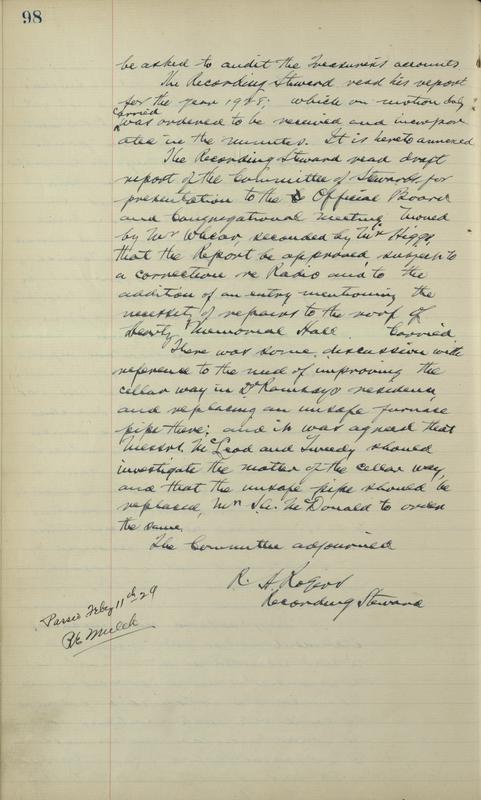 98
be asked to audit the Treasurer's accounts
The Recording Steward read his report
for the year 1928; which on motion duly
carried
was ordered to be received and incorpor
ated in the minutes. It is hereto annexed
The Recording Steward read draft
report of the Committee of Stewards for
presentation to the Official Board
and Congregational meeting moved
by Mr seconded by Mr Higgs,
that the Report be approved subject to
a correction re Radio and to the
addition of an entry mentioning the
necessity of repairs to the roof of
Memorial Hall Carried.
There was some discussion with
reference to the need of improving the
cellar way in Dr Ramsay's residence,
and replacing an unsafe furnace
pipe there; and it was agreed that
Messrs. McLeod and Tweedy should
investigate the matter of the cellar way,
and that the unsafe pipe should be
replaced, Mr McDonald to order
the same.
The Committee adjourned
R. H. Rogers
Recording Steward
Passed Feby 11th 29